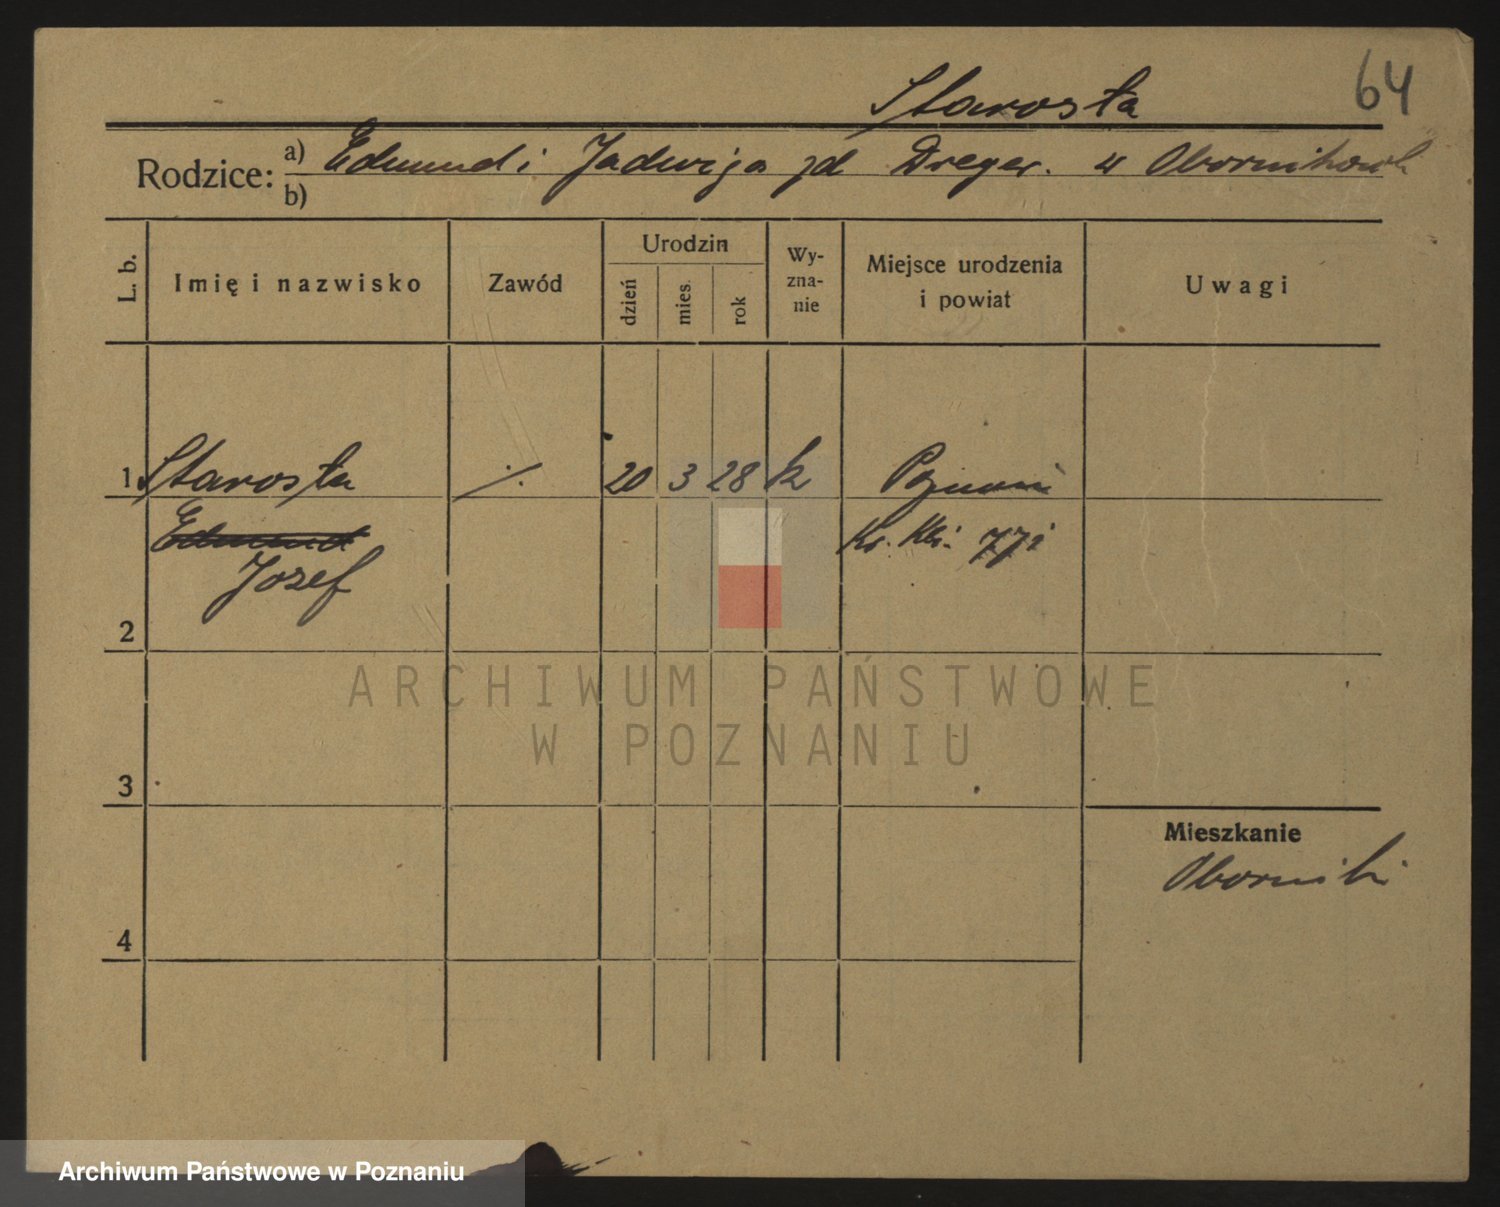 64
Starosta
Rodzice: a) Edmund i Jadwiga zd Dreger. w Obornikach
b)
L. b. Imię i nazwisko Zawód Urodzin dzień mies. rok Wy-zna-nie Miejsce urodzenia i powiat Uwagi
1 Starosta ./. 20 3 28 k Poznań
Edmund
Józef
2
ARCHIWUM PAŃSTWOWE
W POZNANIU
3
Mieszkanie
Oborniki
4
Archiwum Państwowe w Poznaniu